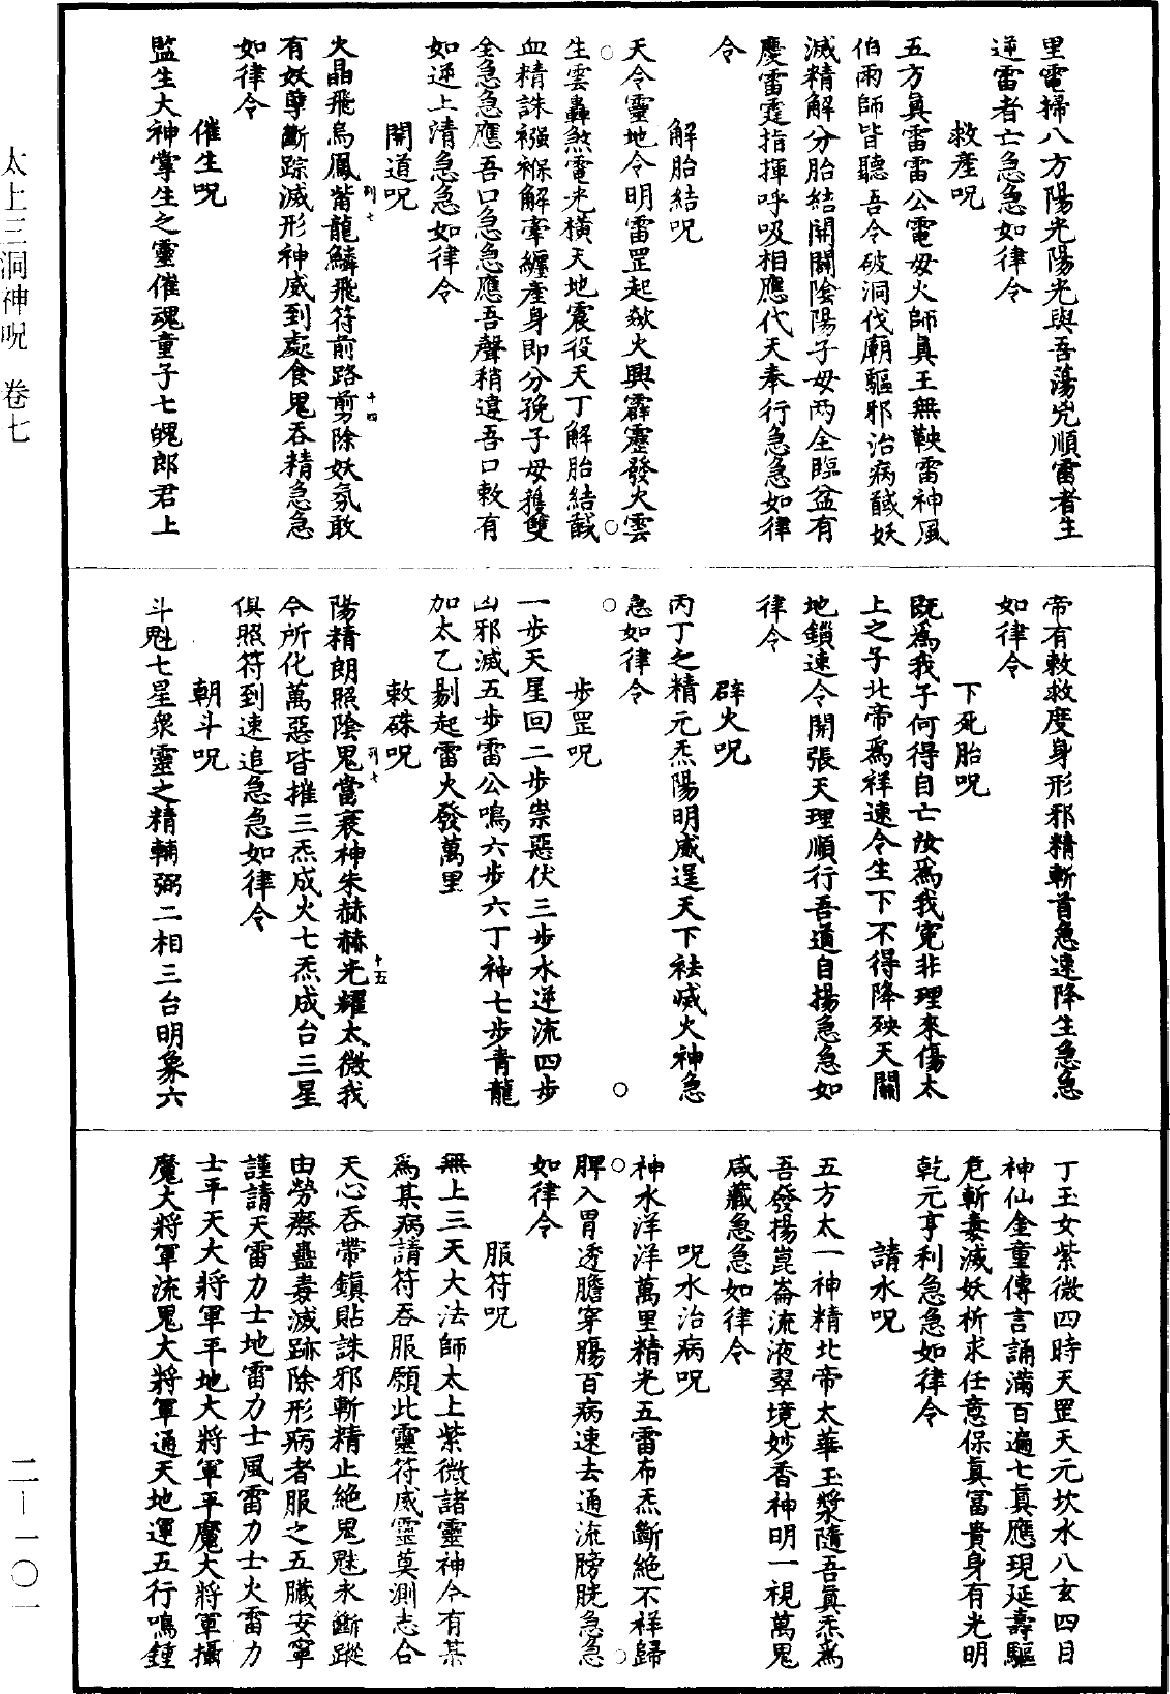 太上三洞神呪　卷七
二—一〇一
里電掃八方陽光陽光與吾蕩兇順雷者生
逆雷者亡急急如律令
救產呪
五方真雷雷公電母火師真王無鞅雷神風
伯雨師皆聽吾令破洞伐廟驅邪治病馘妖
滅精解分胎結開關陰陽子母两全臨盆有
慶雷霆指揮呼吸相應代天奉行急急如律
令
解胎結呪
天令靈地令明雷罡起焱火興霹靂發火雲
生雲轟煞電光橫天地震役天丁解胎結馘
血精誅襁褓解牽纏產身即分娩子母獲雙
全急急應吾口急急應吾聲稍違吾口敕有
如逆上清急急如律令
開道呪
火晶飛烏鳳觜龍鱗飛符前路剪除妖氛敢
有妖孽斷踪滅形神威到處食鬼吞精急急
如律令
催生呪
監生大神掌生之靈催魂童子七魄郎君上
帝有敕救度身形邪精斬首急速降生急急
如律令
下死胎呪
既為我子何得自亡汝為我寃非理來傷太
上之子北帝為祥速令生下不得降殃天關
地鎖速令開張天理順行吾道自揚急急如
律令
辟火呪
丙丁之精元炁陽明威逞天下祛滅火神急
急如律令
步罡呪
一步天星回二步祟惡伏三步水逆流四步
凶邪滅五步雷公鳴六步六丁神七步青龍
加太乙剔起雷火發萬里
敕硃呪
陽精朗照陰鬼當衰神朱赫赫光耀太微我
今所化萬惡皆摧三炁成火七炁成台三星
俱照符到速追急急如律令
朝斗呪
斗魁七星衆靈之精輔弼二相三台明象六
丁玉女紫微四時天罡天元坎水八玄四目
神仙金童傳言誦滿百遍七真應現延壽驅
危斬毒滅妖祈求任意保真富貴身有光明
乾元亨利急急如律令
請水呪
五方太一神精北帝太華玉漿隨吾真炁為
吾發揚崑崙流液翠境妙香神明一視萬鬼
咸藏急急如律令
呪水治病呪
神水洋洋萬里精光五雷布炁斷絕不祥歸
脾入胃透膽穿腸百病速去通流膀胱急急
如律令
服符呪
無上三天大法師太上紫微諸靈神今有某
為某病請符吞服願此靈符威靈莫測志合
天心吞帶鎮貼誅邪斬精止絕鬼魅永斷蹤
由勞瘵蠱毒滅跡除形病者服之五臟安寧
謹請天雷力士地雷力士風雷力士火雷力
士平天大將軍平地大將軍平魔大將軍攝
魔大將軍流鬼大將軍通天地運五行鳴鍾